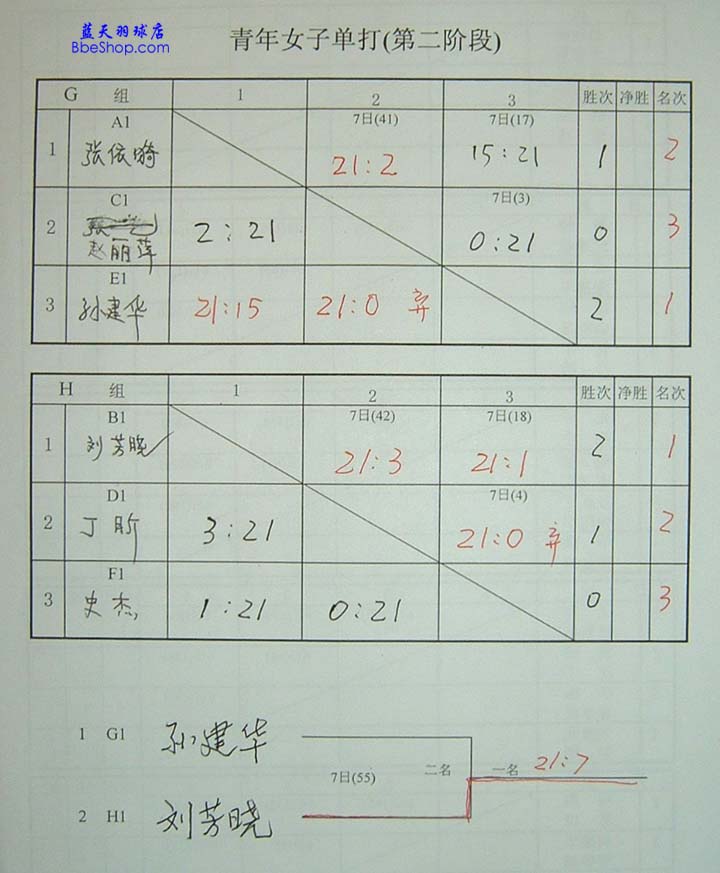 蓝天羽球店
BbeShop.com
青年女子单打(第二阶段)
G 组 1 2 3 胜次 净胜 名次
A1 7日(41) 7日(17)
1 张依 21:2 15:21 1 2
C1 7日(3)
2 2:21 0:21 0 3
赵丽萍
E1
3 孙建华 21:15 21:0 弃 2 1
H 组 1 2 3 胜次 净胜 名次
B1 7日(42) 7日(18)
1 刘芳晓 21:3 21:1 2 1
D1 7日(4)
2 丁昕 3:21 21:0 弃 1 2
F1
3 史杰 1:21 0:21 0 3
1 G1 孙建华
7日(55) 二名 一名 21:7
2 H1 刘芳晓